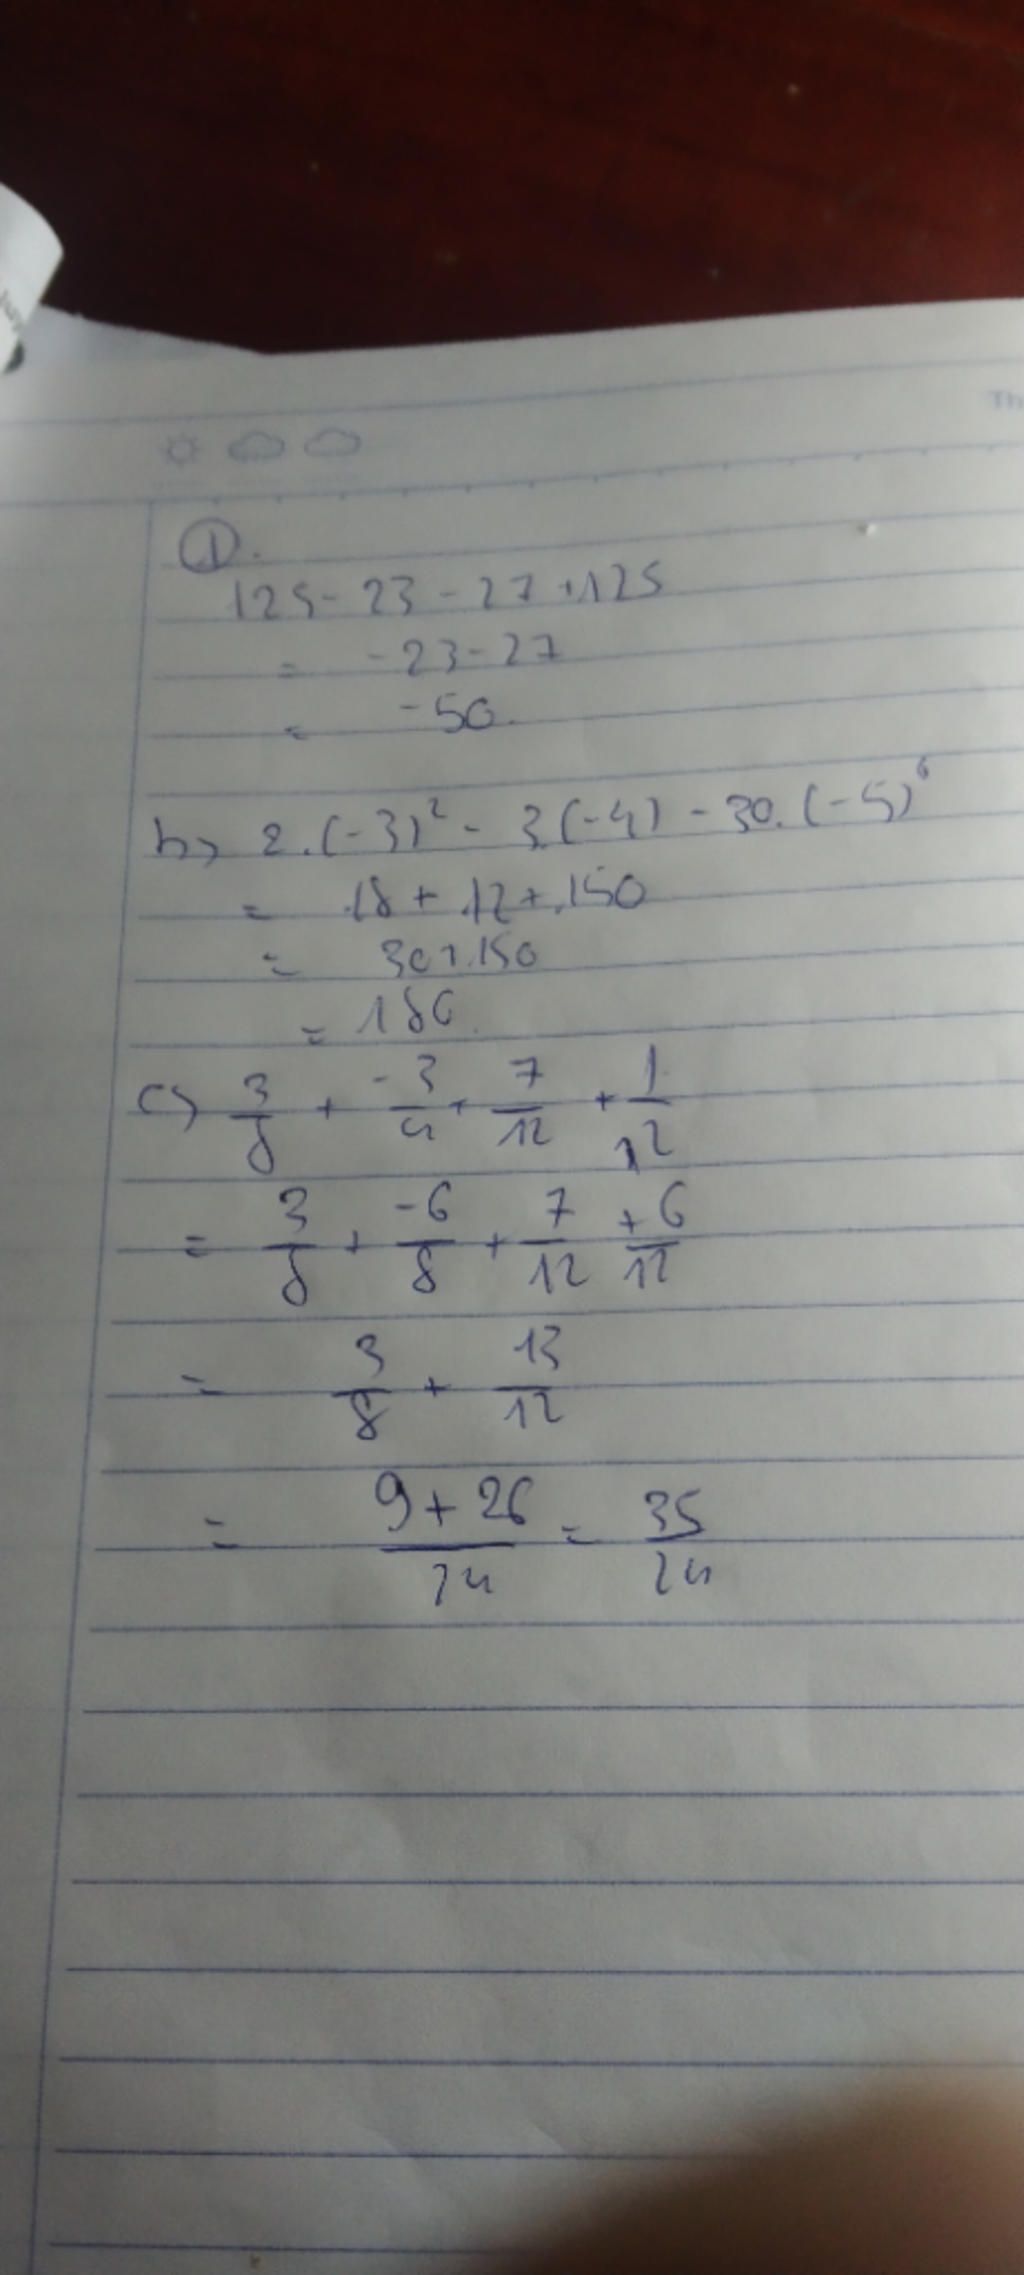 Th
①.
125 - 23 - 27 + 125
= -23 - 27
= -50.
b) 2.(-3)² - 3.(-4) - 30.(-5)⁶
= 18 + 12 + 150
= 30 + 150
= 180.
c) 3/8 + -3/4 + 7/12 + 1/12
= 3/8 + -6/8 + 7/12 + 6/12
= 3/8 + 13/12
= 9+26/24 = 35/24